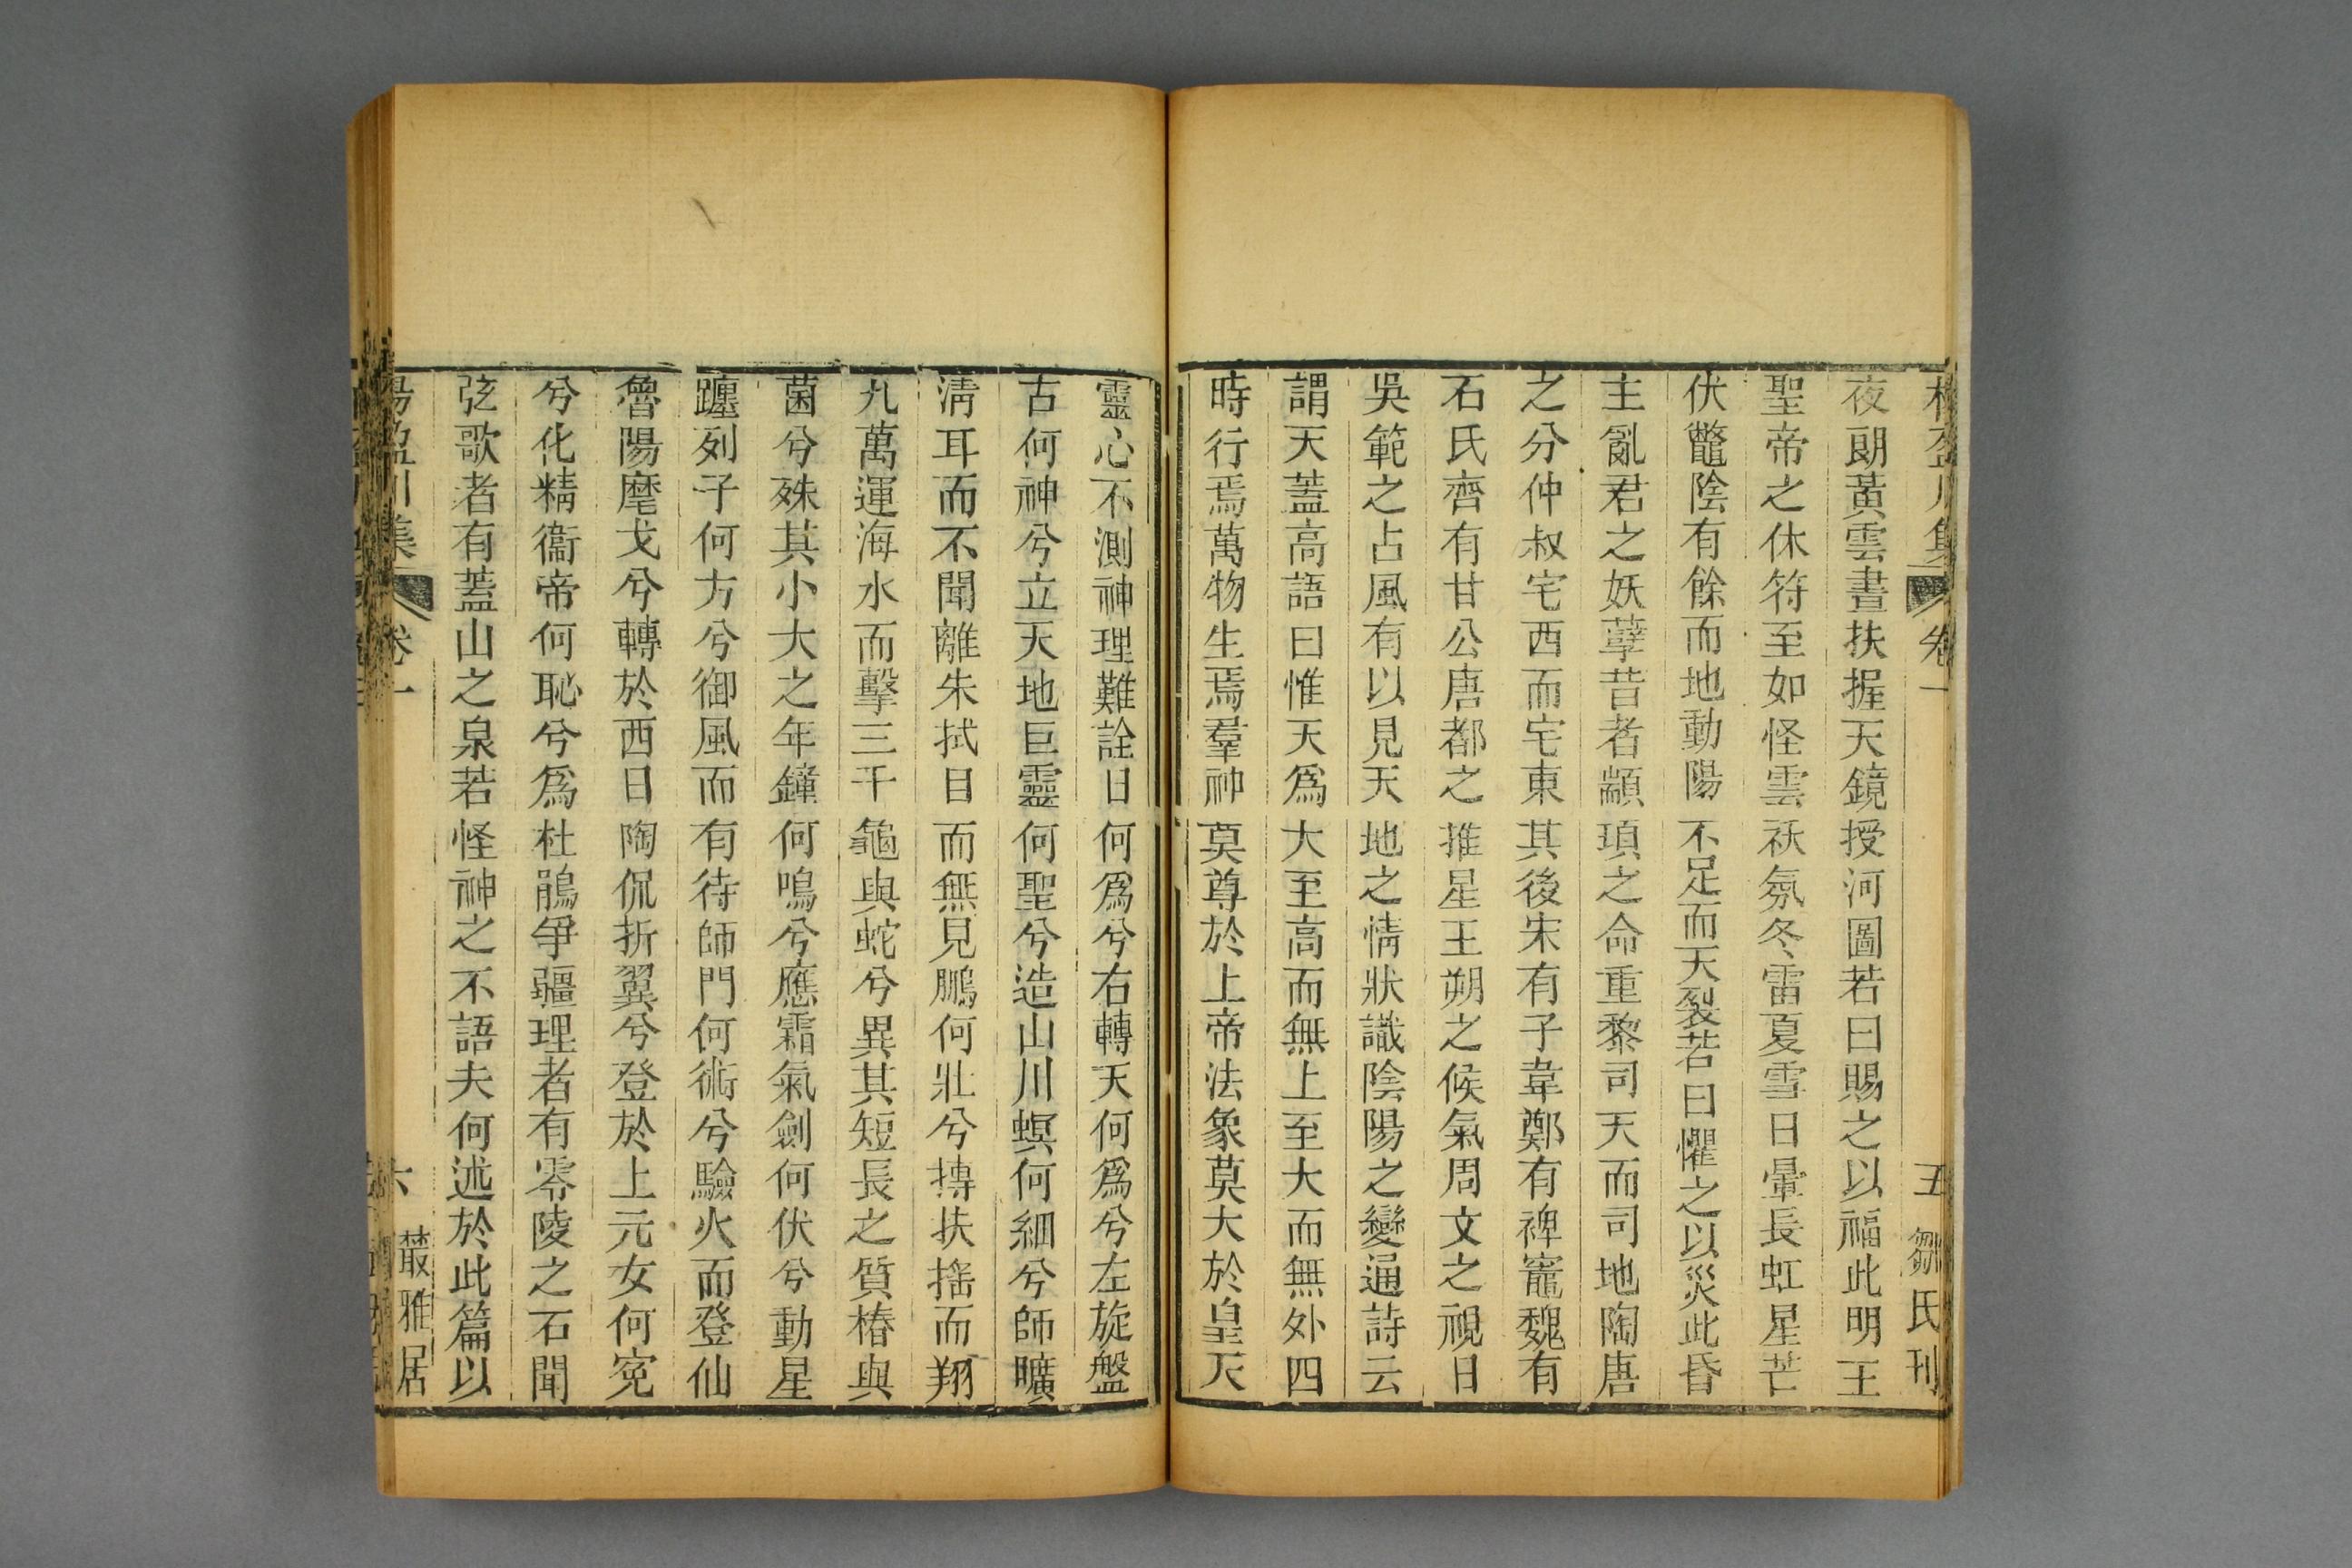 卷一 五 鄒氏刊
夜朗黃雲晝扶握天鏡授河圖若曰賜之以福此明王
聖帝之休符至如怪雲祅氛冬雷夏雪日暈長虹星芒
伏鼈陰有餘而地動陽不足而天裂若曰懼之以災此昏
主亂君之妖孽昔者顓頊之命重黎司天而司地陶唐
之分仲叔宅西而宅東其後宋有子韋鄭有裨竈魏有
石氏齊有甘公唐都之推星王朔之候氣周文之視日
吳範之占風有以見天地之情狀識陰陽之變通詩云
謂天蓋高語曰惟天爲大至高而無上至大而無外四
時行焉萬物生焉羣神莫尊於上帝法象莫大於皇天
靈心不測神理難詮日何爲兮右轉天何爲兮左旋盤
古何神兮立天地巨靈何聖兮造山川螟何細兮師曠
清耳而不聞離朱拭目而無見鵬何壯兮摶扶搖而翔
九萬運海水而擊三千龜與蛇兮異其短長之質椿與
菌兮殊其小大之年鐘何鳴兮應霜氣劍何伏兮動星
躔列子何方兮御風而有待師門何術兮驗火而登仙
魯陽麾戈兮轉於西日陶侃折翼兮登於上元女何冤
兮化精衞帝何恥兮爲杜鵑爭疆理者有零陵之石聞
弦歌者有蓋山之泉若怪神之不語夫何述於此篇以
楊盈川集 卷一 六 叢雅居